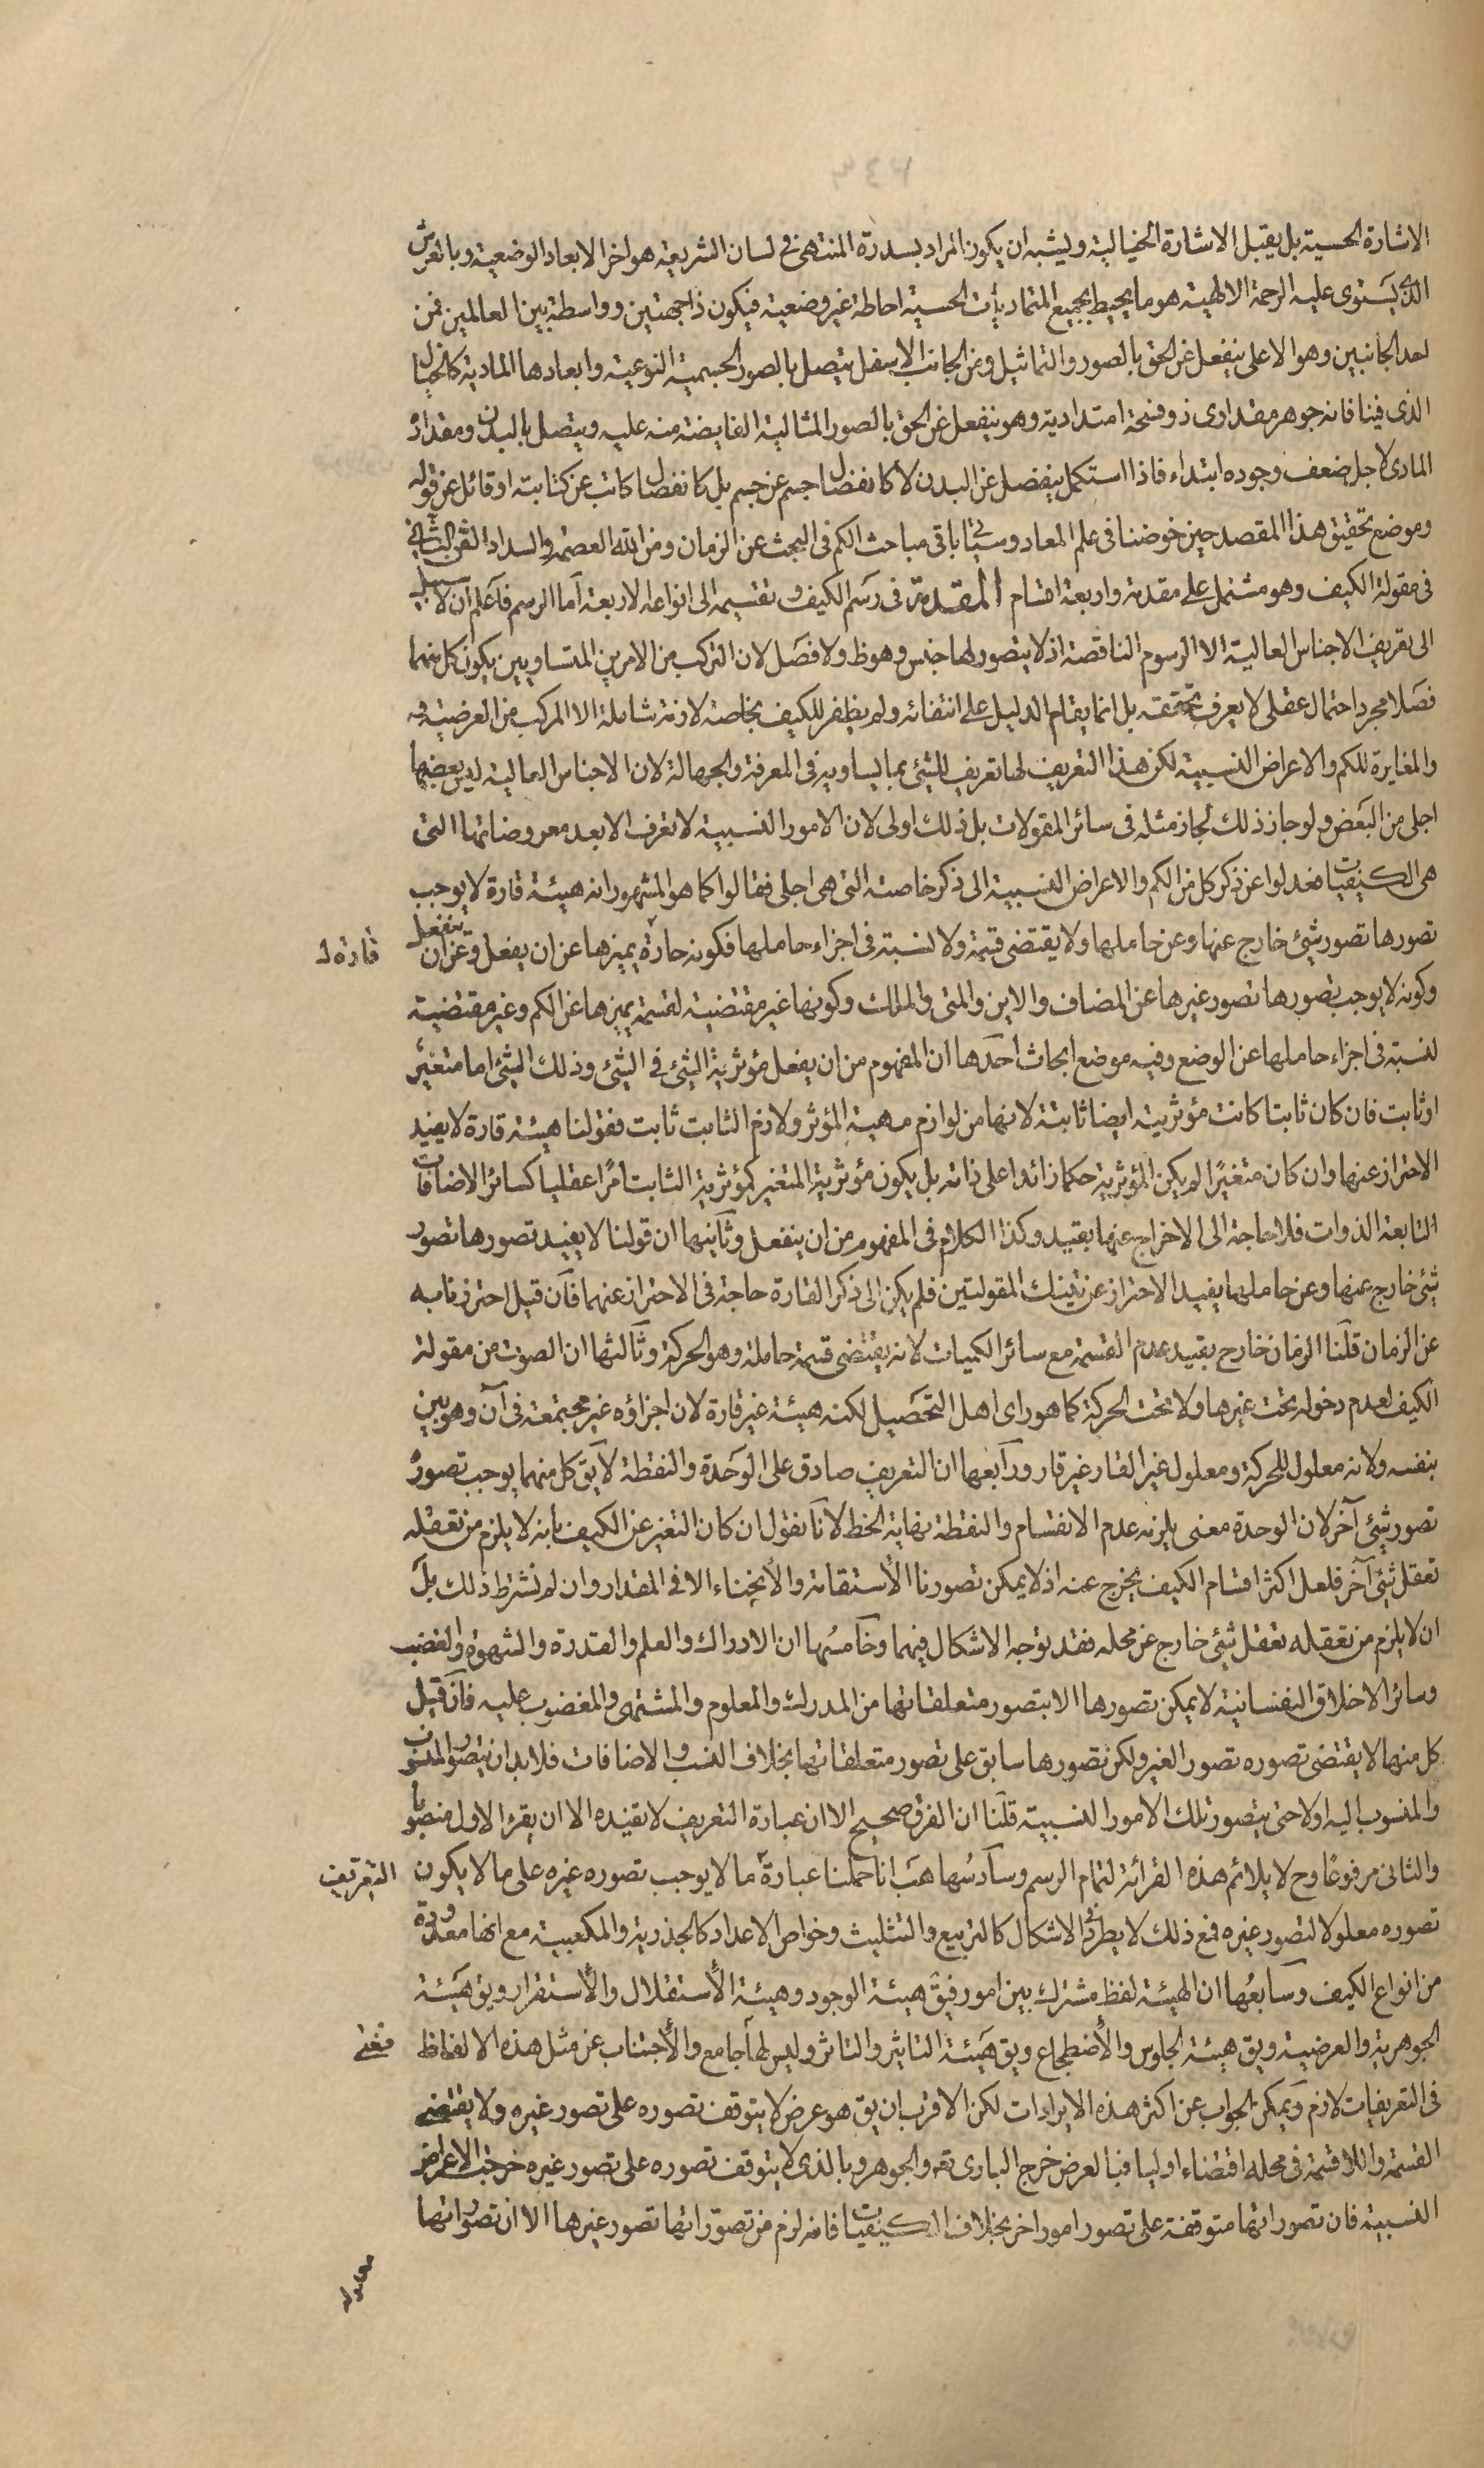 الاشارة الحسية بل يقبل الاشارة الخيالية ويشبه ان يكون المراد بسدرة المنتهى فى لسان الشريعة هو اخر الابعاد الوضعية وبالعرش
الذى يستوى عليه الرحمة الالهية هو ما يحيط بجميع المتماديات الحسية احاطة غير وضعية فيكون ذا جهتين وواسطة بين العالمين فمن
احد الجانبين وهو الاعلى ينفعل عن الحق بالصور والتماثيل وعن الجانب الاسفل يتصل بالصور الجسمية النوعية وابعادها المادية كالخيال
الذى فينا فانه جوهر مقدارى ذو فسحة امتدادية وهو ينفعل عن الحق بالصور المثالية الفايضة منه عليه ويتصل بالبدن ومقداره
المادى لاجل ضعف وجوده ابتداء فاذا استكمل ينفصل عن البدن لا كانفصال جسم عن جسم بل كانفصال كاتب عن كتابته او قائل عن قوله
وموضع تحقيق هذا المقصد حين خوضنا فى علم المعاد وسيأتى باقى مباحث الكم فى البحث عن الزمان ومن الله العصمة والسداد الفن الثانى
فى مقولة الكيف وهو مشتمل على مقدمة واربعة اقسام المقدمة فى رسم الكيف وتقسيمه الى انواعه الاربعة اما الرسم فاعلم ان لا سبيل
الى تعريف الاجناس العالية الا الرسوم الناقصة اذ لا يتصور لها جنس وهو ظ ولا فصل لان التركب من الامرين المتساويين يكون كل منهما
فصلا مجرد احتمال عقلى لا يعرف تحققه بل انما يقام الدليل على انتفائه ولم يظفر للكيف بخاصة لازمة شاملة الا المركب من العرضية
والمغايرة للكم والاعراض النسبية لكن هذا التعريف لها تعريف للشئ بما يساويه فى المعرفة والجهالة لان الاجناس العالية ليس بعضها
اجلى من البعض ولو جاز ذلك لجاز مثله فى سائر المقولات بل ذلك اولى لان الامور النسبية لا تعرف الا بعد معروضاتها التى
هى الكيفيات فعدلوا عن ذكر كل من الكم والاعراض النسبية الى ذكر خاصته التى هى اجلى فقالوا كما هو المشهور انه هيئة قارة لا يوجب
تصورها تصور شئ خارج عنها وعن حاملها ولا يقتضى قسمة ولا نسبة فى اجزاء حاملها فكونه حارة يميزها عن ان يفعل وعن ان ينفعل
قارة ل
وكونه لا يوجب تصورها تصور غيرها عن المضاف والاين والمتى والملك وكونها غير مقتضية لقسمة يميزها عن الكم وغير مقتضية
لنسبة فى اجزاء حاملها عن الوضع وفيه موضع ابحاث احدها ان المفهوم من ان يفعل مؤثرية الشئ فى الشئ وذلك الشئ اما متغير
او ثابت فان كان ثابتا كانت مؤثريته ايضا ثابتة لانها من لوازم مهية المؤثر ولازم الثابت ثابت فقولنا هيئة قارة لا يفيد
الاحتراز عنها وان كان متغيرا لم يكن المؤثرية حكما زائدا على ذاته بل يكون مؤثرية المتغير كمؤثرية الثابت امرا عقليا كسائر الاضافات
التابعة الذوات فلا حاجة الى الاخراج عنها بقيد وكذا الكلام فى المفهوم من ان ينفعل وثانيها ان قولنا لا يفيد تصورها تصور
شئ خارج عنها وعن حاملها يفيد الاحتراز عن تينك المقولتين فلم يكن الى ذكر القارة حاجة فى الاحتراز عنهما فان قيل احترزنا به
عن الزمان قلنا الزمان خارج بقيد عدم القسمة مع سائر الكميات لانه يقتضى قسمة حاملة وهو الحركة وثالثها ان الصوت من مقولة
الكيف لعدم دخوله تحت غيرها ولا تحت الحركة كما هو راى اهل التحصيل لكنه هيئة غير قارة لان اجزاؤه غير مجتمعة فى آن وهو بين
بنفسه ولانه معلول للحركة ومعلول غير القار غير قار ورابعها ان التعريف صادق على الوحدة والنقطة لا يق كل منهما يوجب تصوره
تصور شئ آخر لان الوحدة معنى يلزمه عدم الانقسام والنقطة نهاية الخط لانا نقول ان كان التغير عن الكيف بأنه لا يلزم من تعقله
تعقل شئ آخر فلعل اكثر اقسام الكيف يخرج عنه اذ لا يمكن تصورنا الاستقامة والانحناء الا فى المقدار وان لم نشترط ذلك بل
ان لا يلزم من تعقله تعقل شئ خارج عن محله فقد توجه الاشكال فيهما وخامسها ان الادراك والعلم والقدرة والشهوة والغضب
وسائر الاخلاق النفسانية لا يمكن تصورها الا بتصور متعلقاتها من المدرك والمعلوم والمشتهى والمغضوب عليه فان قيل
كل منها لا يقتضى تصوره تصور الغير ولكن تصورها سابق على تصور متعلقاتها بخلاف النسب والاضافات فلا بد ان يتصور المنسوب
والمنسوب اليه اولا حتى يتصور تلك الامور النسبية قلنا ان الفرق صحيح الا ان عبارة التعريف لا تفيده الا ان يقرء الاول منصوبا
والثانى مرفوعا وح لا يلائم هذه القرائة لتمام الرسم وسادسها هب انا حملنا عبارة ما لا يوجب تصوره غيره على ما لا يكون
التعريف
تصوره معلولا لتصور غيره فمع ذلك لا يطرد والاشكال كالتربيع والتثليث وخواص الاعداد كالجذرية والمكعبية مع انها معدودة
من انواع الكيف وسابعها ان الهيئة لفظ مشترك بين امور فيق هيئة الوجود وهيئة الاستقلال والاستقرار ويق هيئة
الجوهرية والعرضية ويق هيئة الجلوس والاضطجاع ويق هيئة التاثير والتاثر وليس لها جامع والاجتناب عن مثل هذه الالفاظ
فى التعريفات لازم ويمكن الجواب عن اكثر هذه الايرادات لكن الاقرب ان يق هو عرض لا يتوقف تصوره على تصور غيره ولا يقتضى
القسمة واللاقسمة فى محله اقتضاء اوليا فبالعرض خرج البارى تع والجوهر وبالذى لا يتوقف تصوره على تصور غيره خرجت الاعراض
النسبية فان تصوراتها متوقفة على تصور امور اخر بخلاف الكيفيات فانه لزم من تصوراتها تصور غيرها الا ان تصوراتها